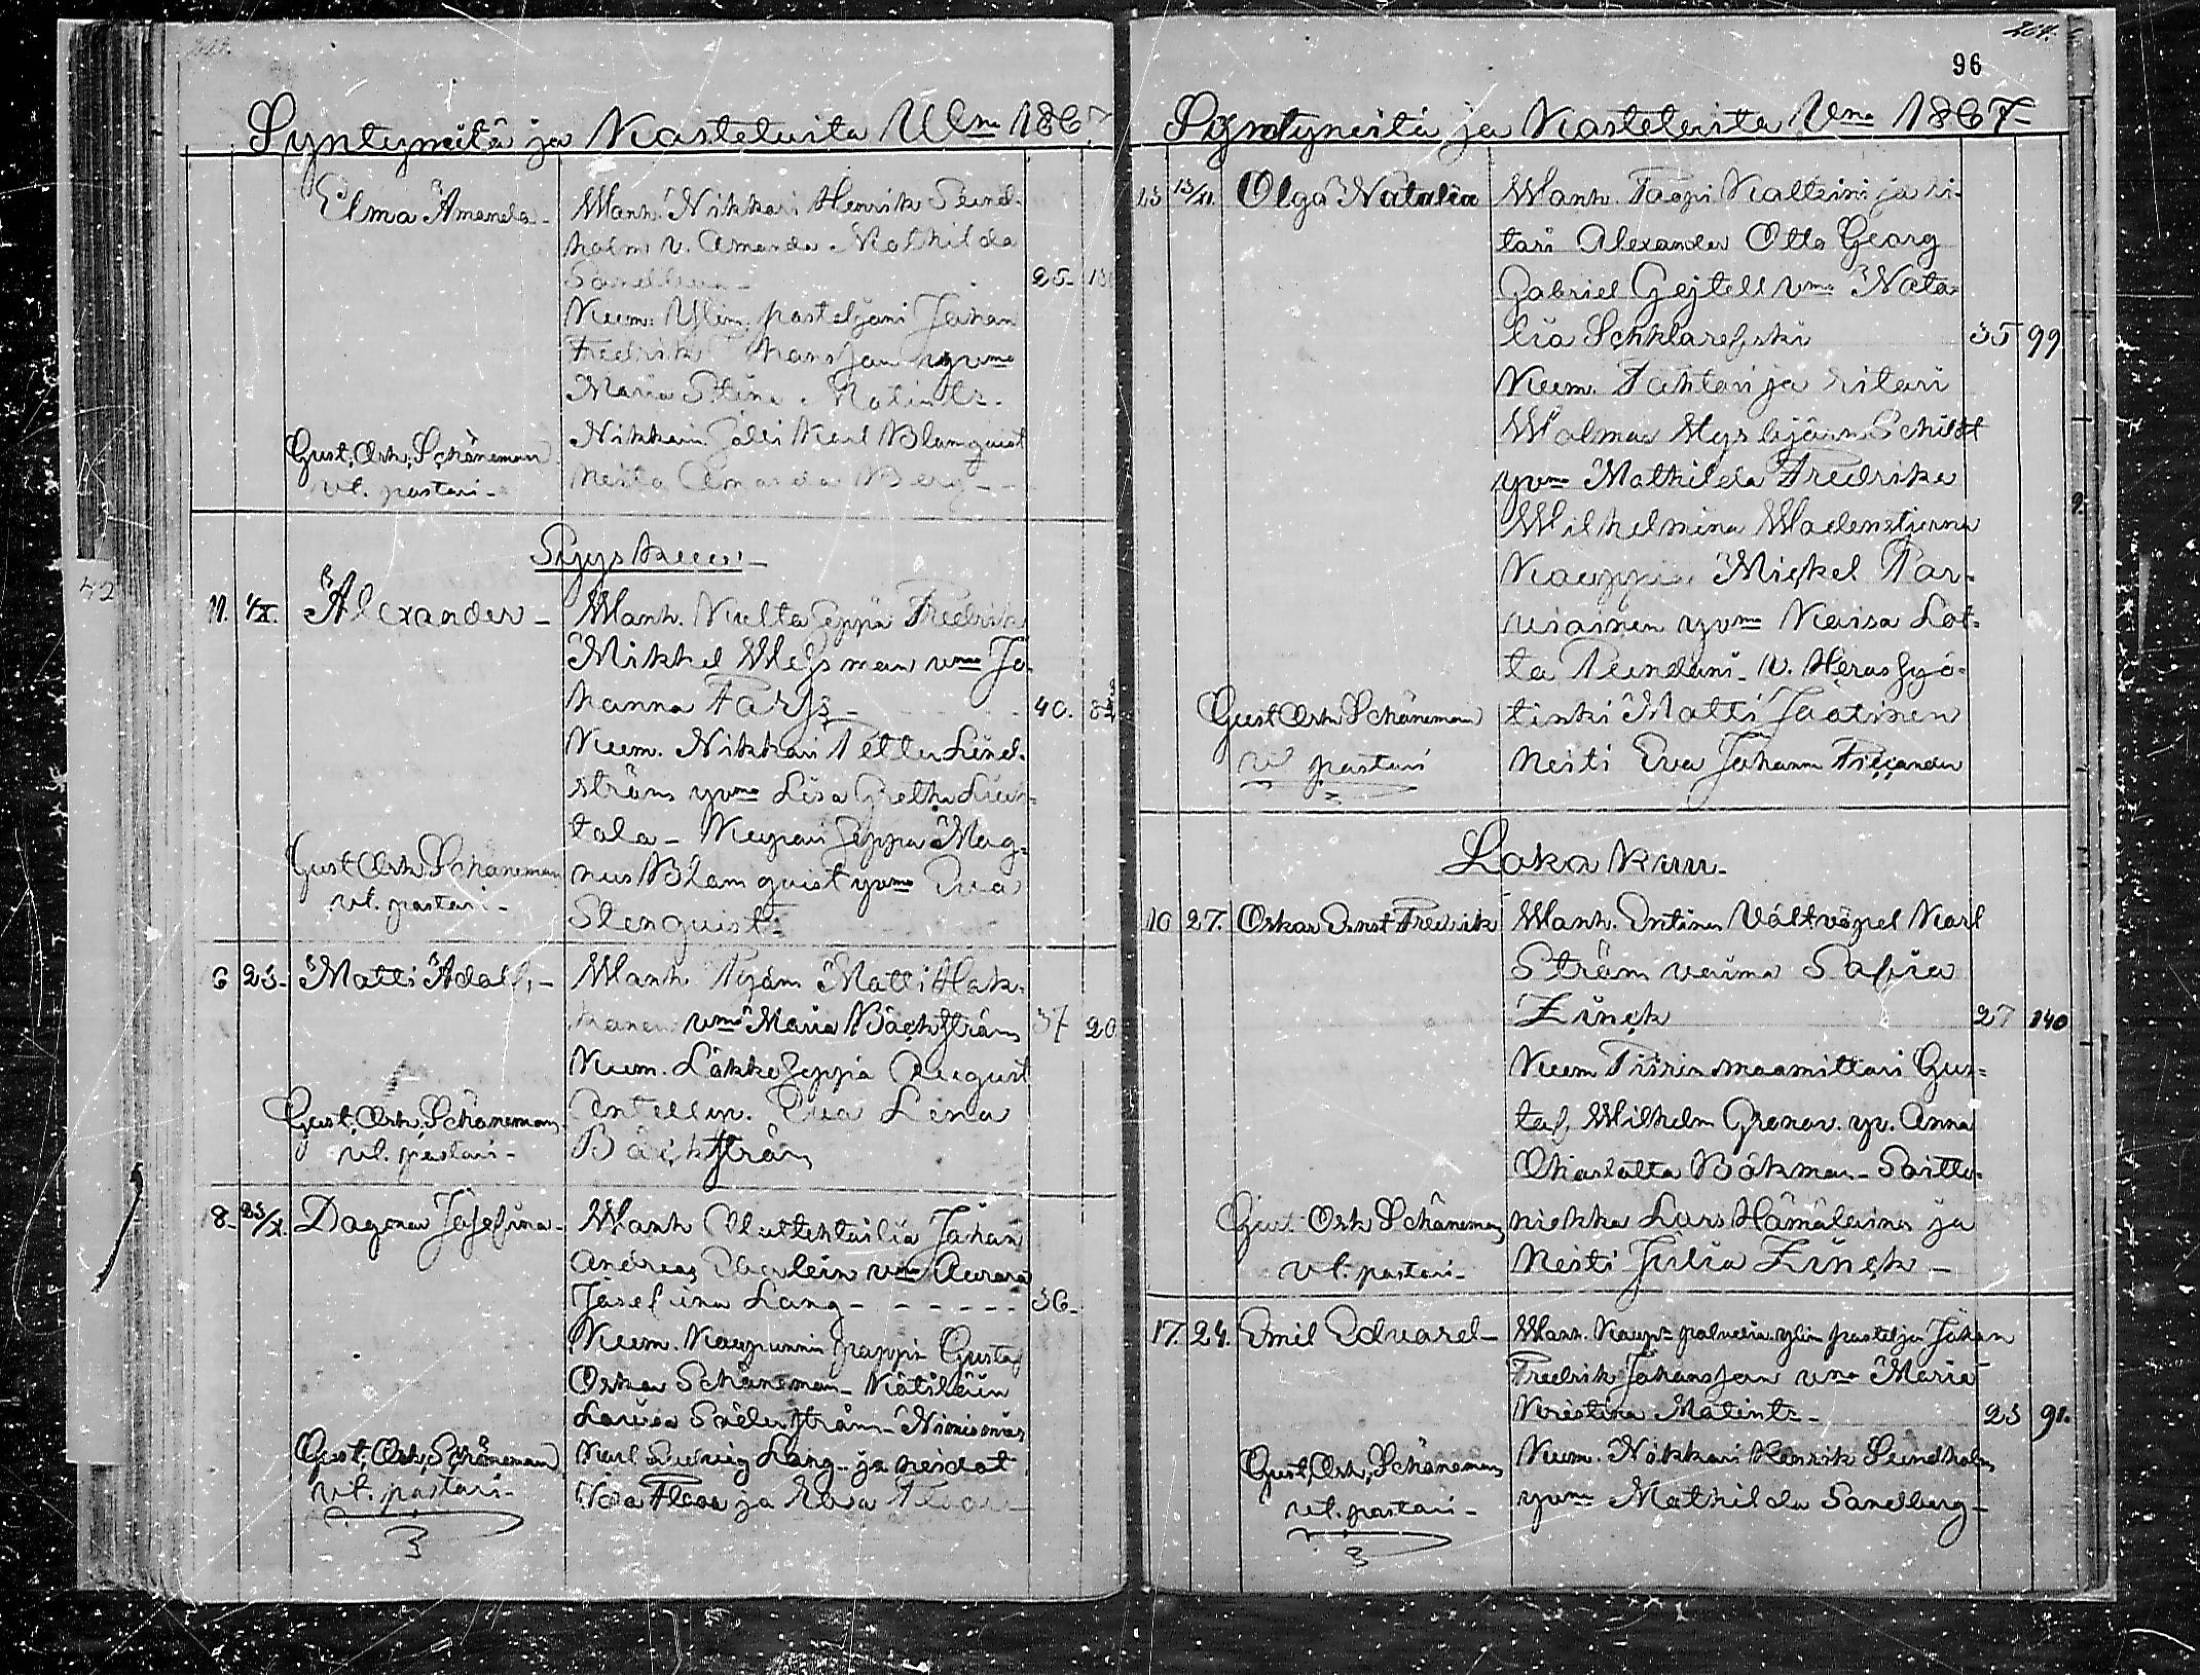 Syntyneitä ja Kastetuita Wlna 1867
Elma Amanda -
Wanh. Nikkari Henrik Lund-
holm v. Amanda Mathilda
Sandberg -
25. 130
Kum. Ylim. posteljoni Johan
Fredrik Johansson yvma
Maria Stina Matintr.
Nikkarin sälli Karl Blomquist
Neito Amanda Berg - -
Gust. Osk. Schöneman
vt. pastori -
Syyskuu -
11. 4/X. Alexander -
Wanh. Kultaseppä Fredrik
Mikkel Wessman vma Jo-
hanna Farss - 40. 82
Kum. Nikkari Petter Lind-
ström yvma Lisa Gretha
tala - Kupariseppä Mag-
nus Blomquist yvma Eva
Stenquist -
Gust. Osk. Schöneman
vt. pastori -
6 23. Matti Adolf, -
Wanh. Matti Hak-
kanen vma Maria Bäckström 37 20
Kum. Läkkeseppä August
Antell yv. Eva Lena
Bäckström
Gust. Osk. Schöneman
vt. pastori -
8. 23/X. Dagmar Josefina -
Wanh. Johan
Andreas vma Aurora
Josefina Lang - - - - - - 36 -
Kum. Kaupunnin pappi Gustaf
Oskar Schöneman - Kätilön
Lovisa Söderström - Nimismies
Karl Ludvig Lang - ja neidot
Ida ja
Gust. Osk. Schöneman
vt. pastori -
264.
96
Syntyneitä ja Kastetuita Vna 1867 -
23 13/XI. Olga Natalia
Wanh. Tasapi Kapteini ja ri-
tari Alexander Otto Georg
Gabriel Gejtell vma Nata-
lia Schklarefski 35 99
Kum. Tohtori ja ritari
Wolmar Schildt
yvma Mathilda Fredrika
Wilhelmina Wadenstjerna
Kauppias Mickel Par-
viainen yvma Kaisa Lot-
ta Pundani - N. Herassyö-
tinki Matti Jaatinen
Neiti Eva Johanna Ticcander
Gust. Osk. Schöneman
vt pastori
Loka Kuu -
10 27. Oskar Ernst Fredrik
Wanh. Entinen Vältvöpel Karl
Ström vaima Sofia
Zinck 27 140
Kum. Piirin maamittari Gus-
taf Wilhelm Granar. yv. Anna
Charlotta Bökman - Soitto-
niekka Lars Hämäläinen ja
Neiti Julia Zinck -
Gust. Osk Schöneman
vt. pastori -
17. 24. Emil Eduard -
Wanh. Kaup. palvelia ylim posteljo Johan
Fredrik Johansson vma Maria
Kristina Matintr - 23 91.
Kum. Nikkari Henrik Lundholm
yvma Mathilda Sandberg -
Gust. Osk. Schöneman
vt. pastori -